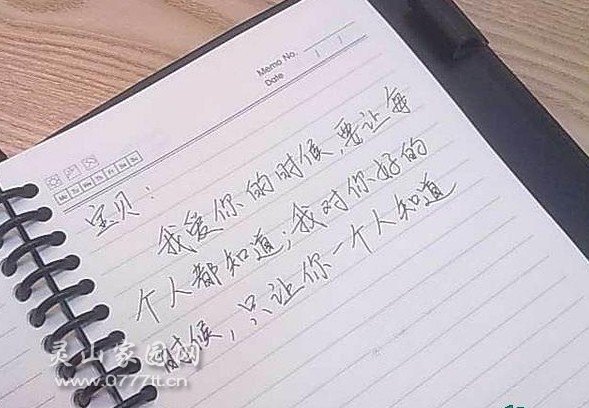 Memo No.
Date
Mo Tu We Th Fr Sa Su
宝贝：
我爱你的时候，要让每
个人都知道；我对你好的
时候，只让你一个人知道
灵山家园网
www.0777tt.cn